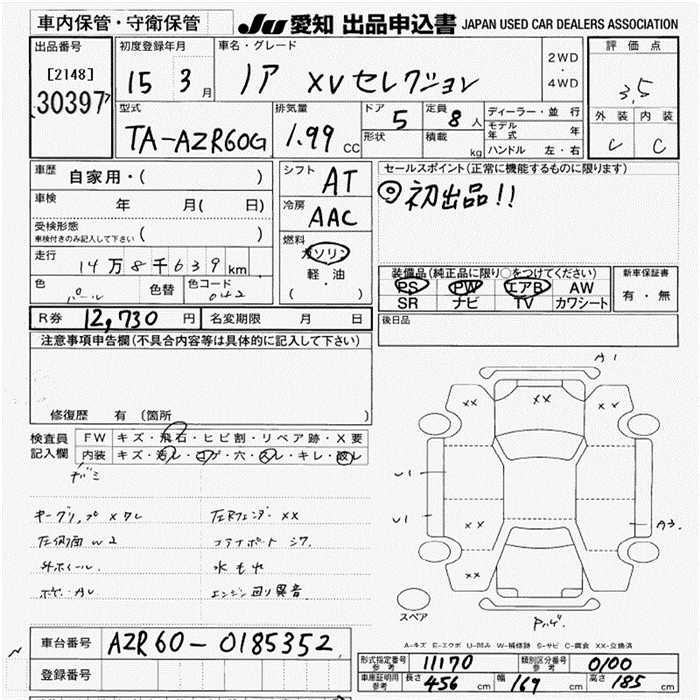 車内保管・守衛保管
JU 愛知 出品申込書 JAPAN USED CAR DEALERS ASSOCIATION
出品番号
[2148]
30397
初度登録年月
15 3 月
車名・グレード
ノア XVセレクション
2WD
・
4WD
評価点
3.5
外装 内装
C C
型式
TA-AZR60G
排気量
1.99 CC
ドア 5
形状
定員 8 人
積載 kg
ディーラー・並行
モデル年式 年
ハンドル 左・右
車歴 自家用・( )
車検 年 月( 日)
受検形態
車検付きのみ記入して下さい ( )
走行
14万8千639km
色 パール 色替 色コード 042
シフト AT
冷房 AAC
燃料
ガソリン
軽・油
( )
セールスポイント(正常に機能するものに限ります)
◎初出品!!
装備品(純正品に限り○をつけてください)
PS PW エアB AW
SR ナビ TV カワシート
新車保証書
有・無
後日品
R券 12,730 円 名変期限 月 日
注意事項申告欄(不具合内容等は具体的に記入して下さい)
修復歴 有 (箇所 )
検査員記入欄
FW キズ・飛石・ヒビ割・リペア跡・X要
内装 キズ・汚レ・コゲ・穴・スレ・キレ・破レ
A1
XX XX XX
U1
U1
XX
XX
A3
スペア
左Rフェンダー XX
エンジン回り異音
A-キズ E-エクボ U-凹み W-補修跡 S-サビ C-腐食 XX-交換済
車台番号 AZR60-0185352
登録番号
形式指定番号 参考 11170 類別区分番号 参考 0100
車庫証明用 参考 長さ 456 cm 幅 169 cm 高さ 185 cm